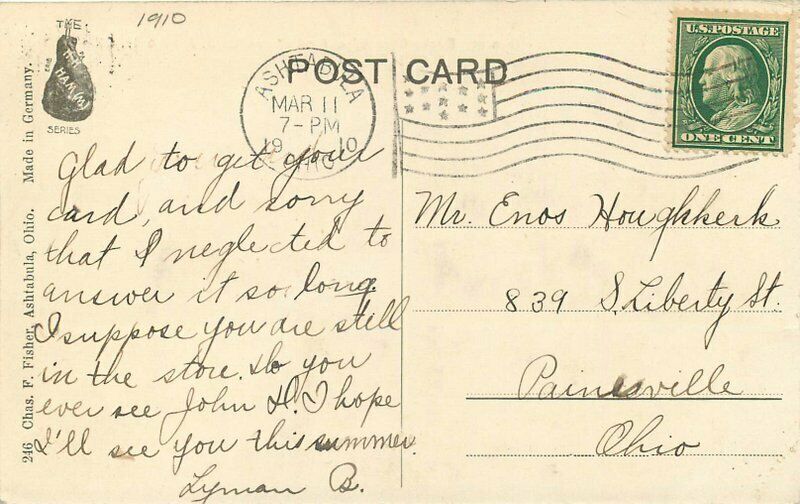 1910
THE
HAM
SERIES
POST CARD
ASHTABULA
MAR 11
7-PM
1910
OHIO
U.S. POSTAGE
ONE CENT
246 Chas. F. Fisher, Ashtabula, Ohio. Made in Germany.
Glad to get your
card, and sorry
that I neglected to
answer it so long.
I suppose you are still
in the store. Do you
ever see John H. I hope
I'll see you this summer.
Lyman B.
Mr. Enos Houghkerk
839 S. Liberty St.
Painesville
Ohio